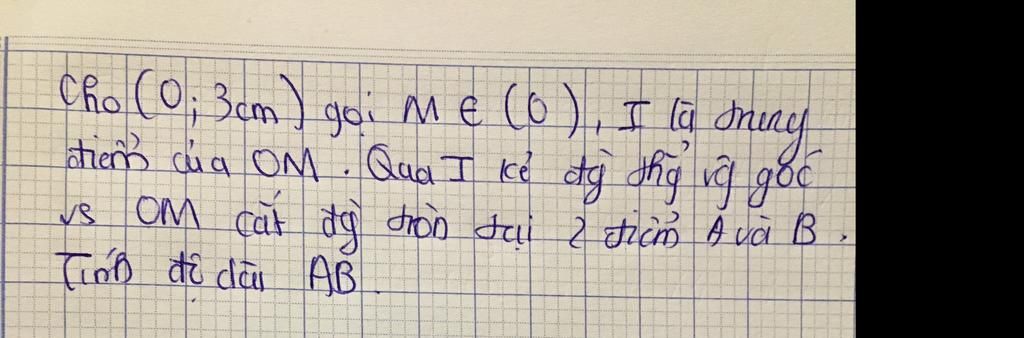 Cho (O; 3cm) gọi M ∈ (O), I là trung
điểm của OM. Qua I kẻ đg thg vg góc
vs OM cắt đg tròn tại 2 điểm A và B.
Tính độ dài AB.